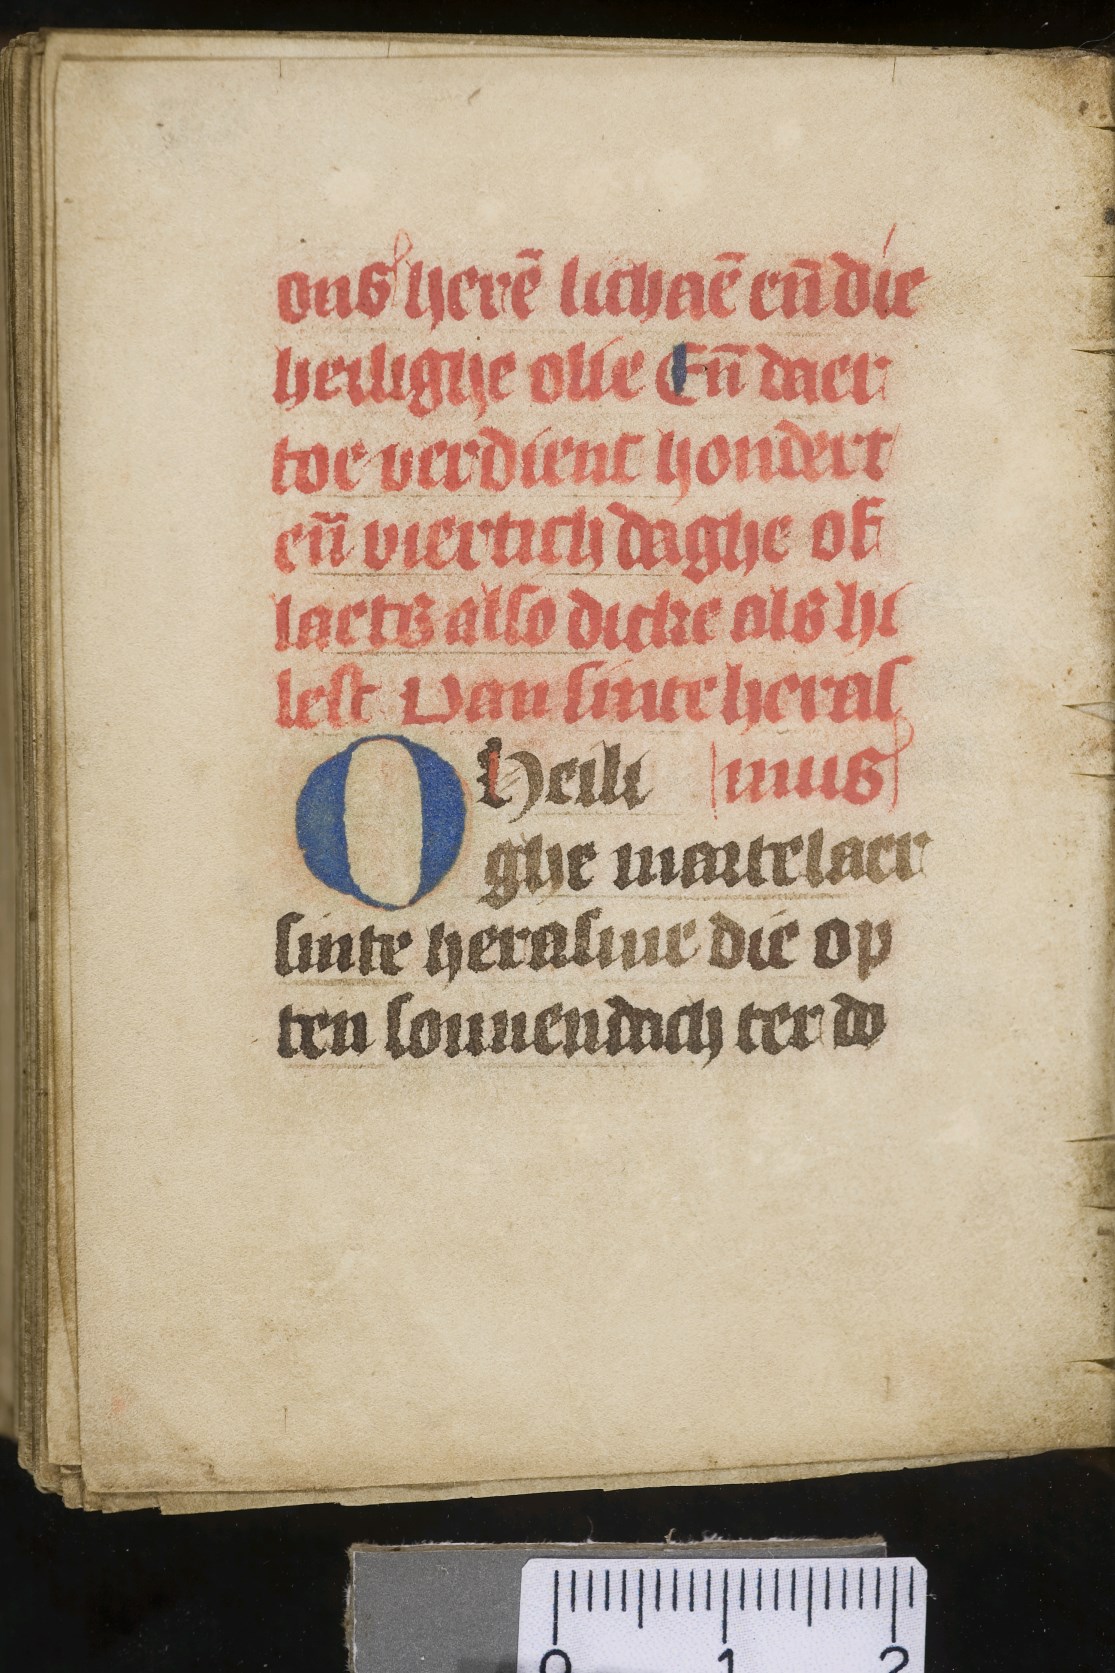 ons herē lichaē en̄ die
heilighe olie En̄ daer
toe verdient hondert
en̄ viertich daghe of
laets also dicke als hi
lest Van sinte heras
O Heili mus
ghe martelaer
sinte herasme die op
ten sonnendach ter do
0 1 2